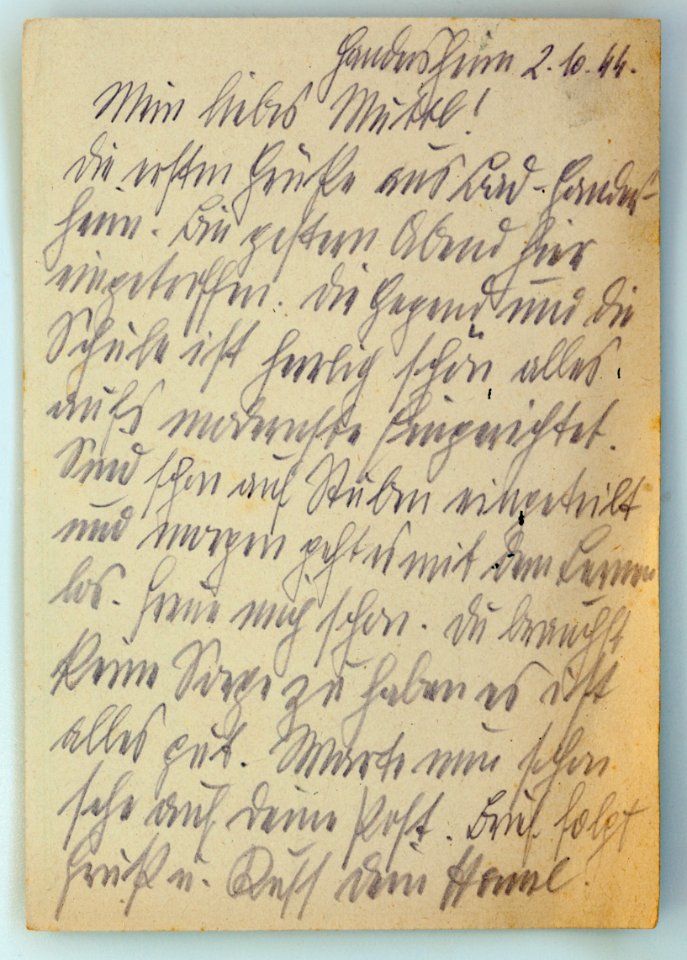 Gandersheim 2.10.44.
Mein liebes Muttl!
Die ersten Grüße aus Bad-Ganders-
heim. Bin gestern Abend hier
eingetroffen. Die Gegend und die
Schule ist herrlig schön alles
aufs modernste eingerichtet.
Sind schon auf Stuben eingeteilt
und morgen geht es mit dem Lernen
los. Freue mich schon. Du brauchst
keine Sorge zu haben es ist
alles gut. Warte nun schon
sehr auf deine Post. Brief folgt
Gruß u. Kuss dein